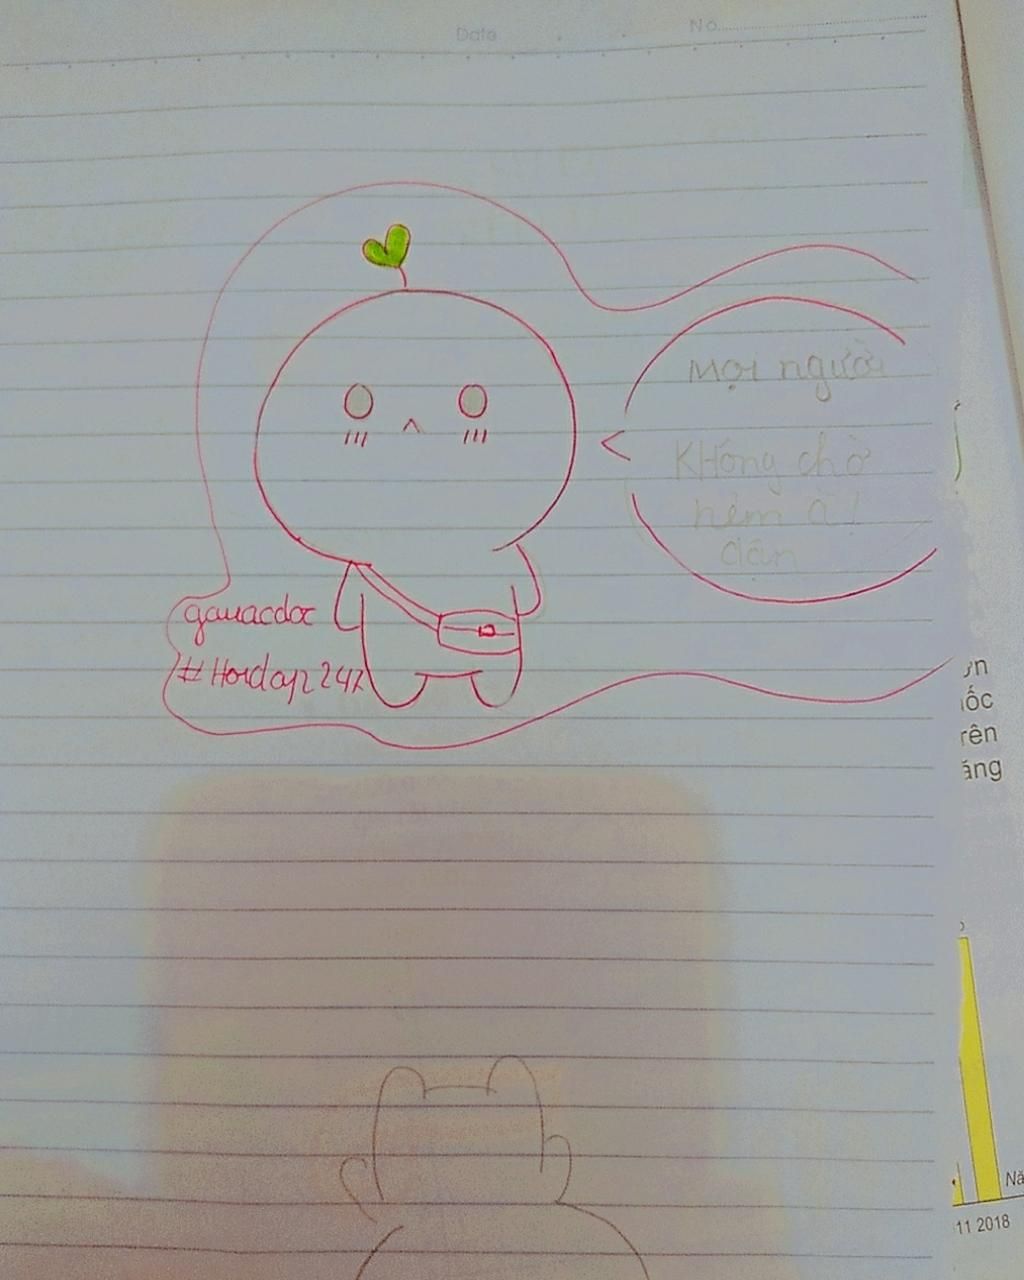 Date
No
Mọi người
KHông chờ
hẻm à!
dân
gauacdoc
#Hoidap247
ơn
ốc
rên
ăng
Nă
11 2018